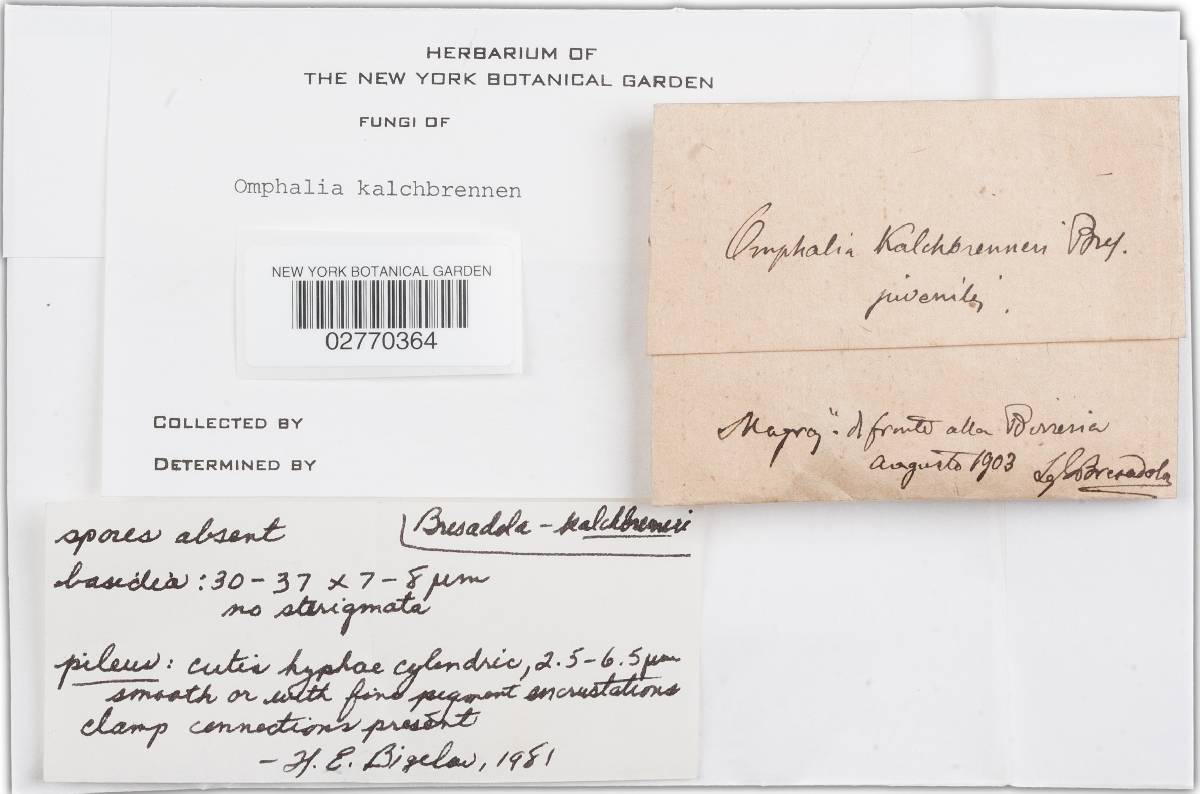 HERBARIUM OF
THE NEW YORK BOTANICAL GARDEN
FUNGI OF
Omphalia kalchbrennen
NEW YORK BOTANICAL GARDEN
02770364
COLLECTED BY
DETERMINED BY
Omphalia Kalchbrenneri Bres.
juvenilis.
di fronte alla Birreria
augusto 1903
Bresadola
Bresadola - kalchbrenneri
spores absent
basidia: 30-37 x 7-8 µm
no sterigmata
pileus: cutis hyphae cylindric, 2.5-6.5 µm
smooth or with fine pigment encrustations
clamp connections present
- H. E. Bigelow, 1981